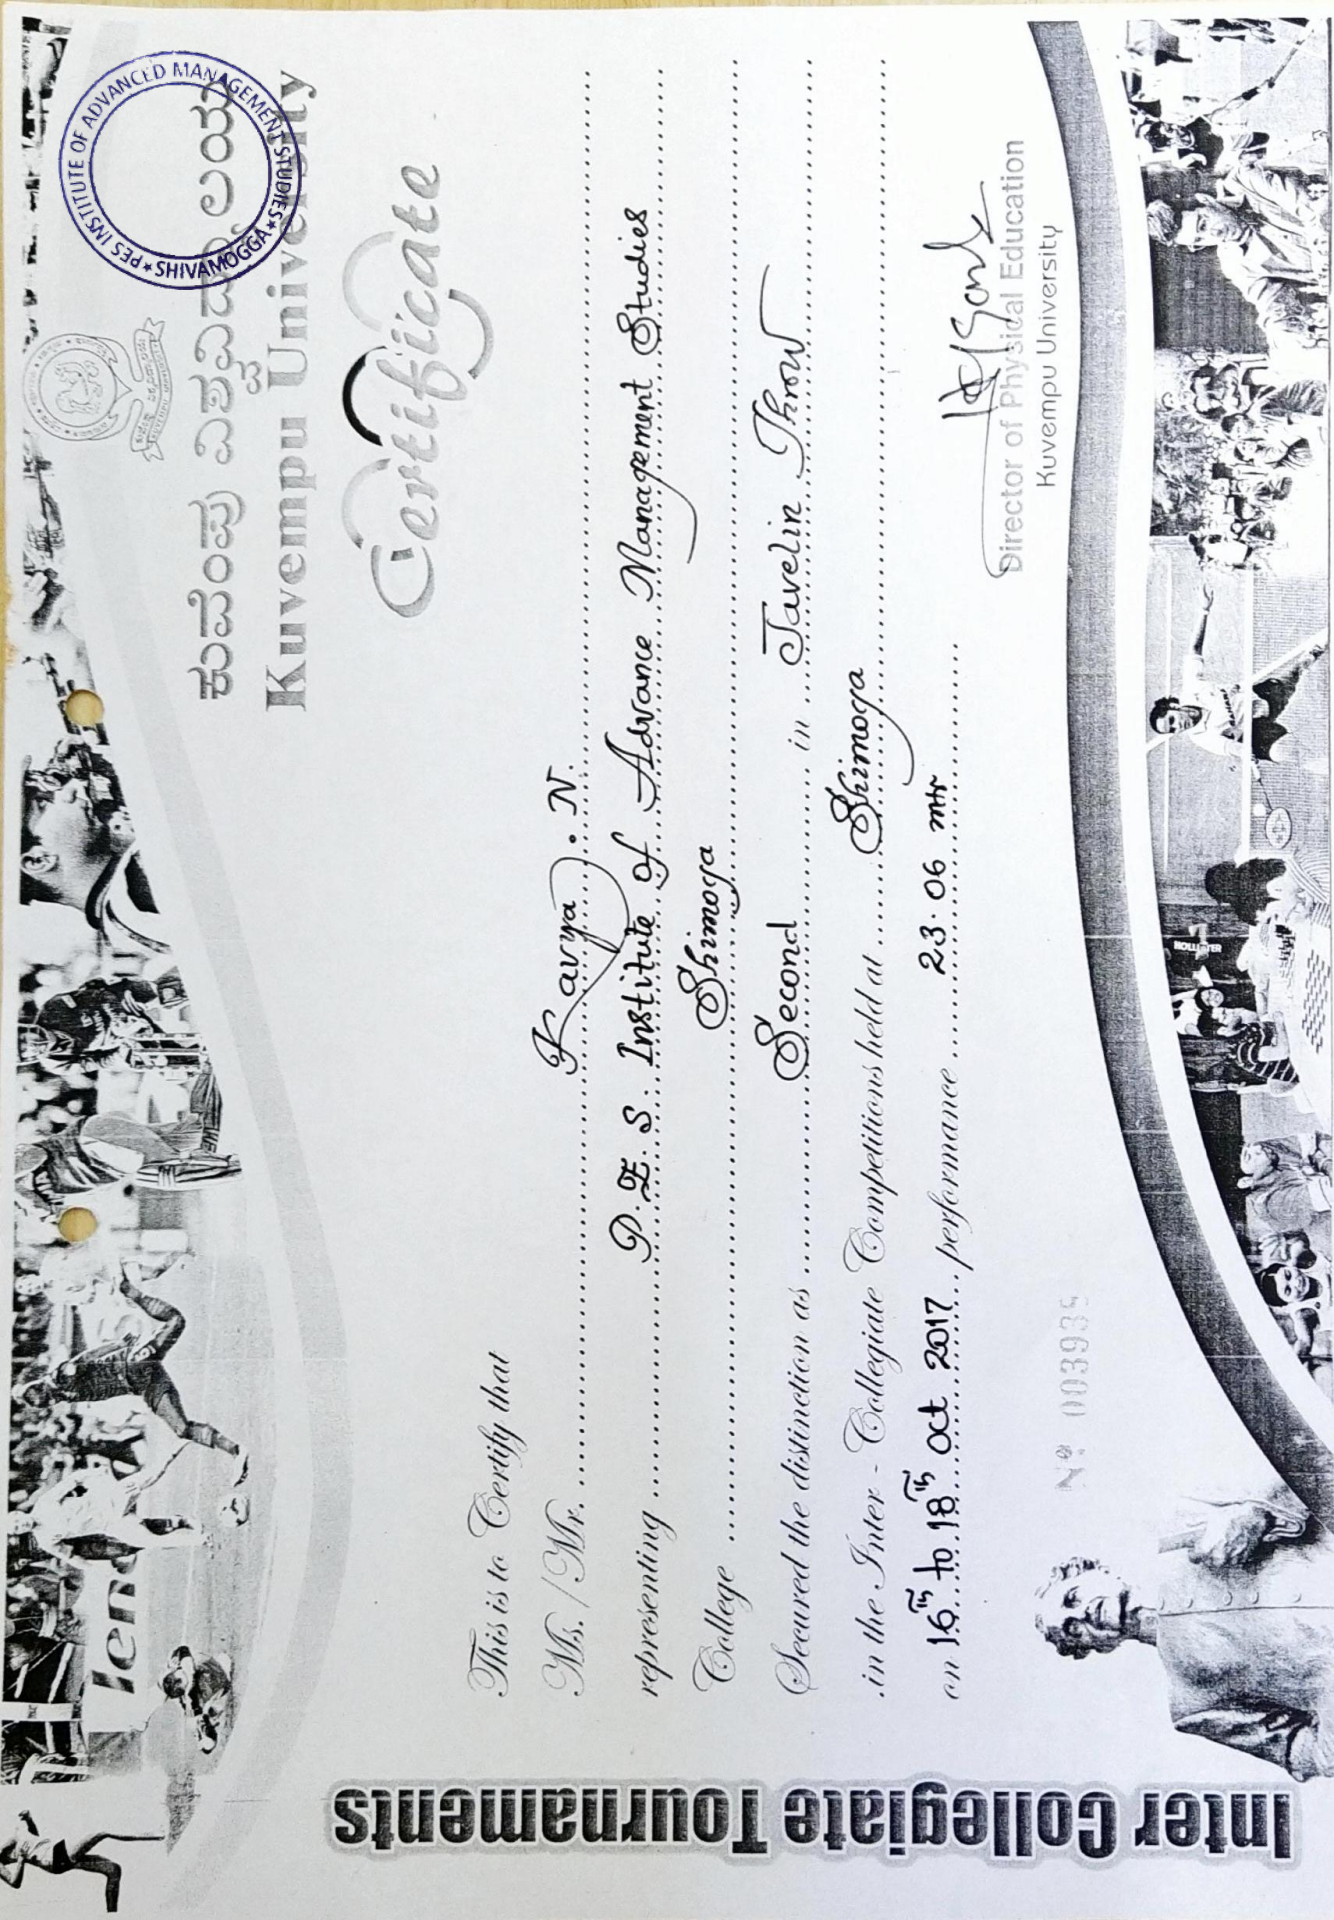 ಕುವೆಂಪು ವಿಶ್ವವಿದ್ಯಾಲಯ
Kuvempu University
PES INSTITUTE OF ADVANCED MANAGEMENT STUDIES
★ SHIVAMOGGA ★
Certificate
This is to Certify that
Ms. / Mr. Kavya . N.
representing P. E. S. Institute of Advance Management Studies
College Shimoga
Secured the distinction as Second in Javelin Throw
in the Inter - Collegiate Competitions held at Shimoga
on 16th to 18th Oct 2017 performance 23.06 mtr
Nº 003935
Director of Physical Education
Kuvempu University
Inter Collegiate Tournaments
HOLLISTER
len